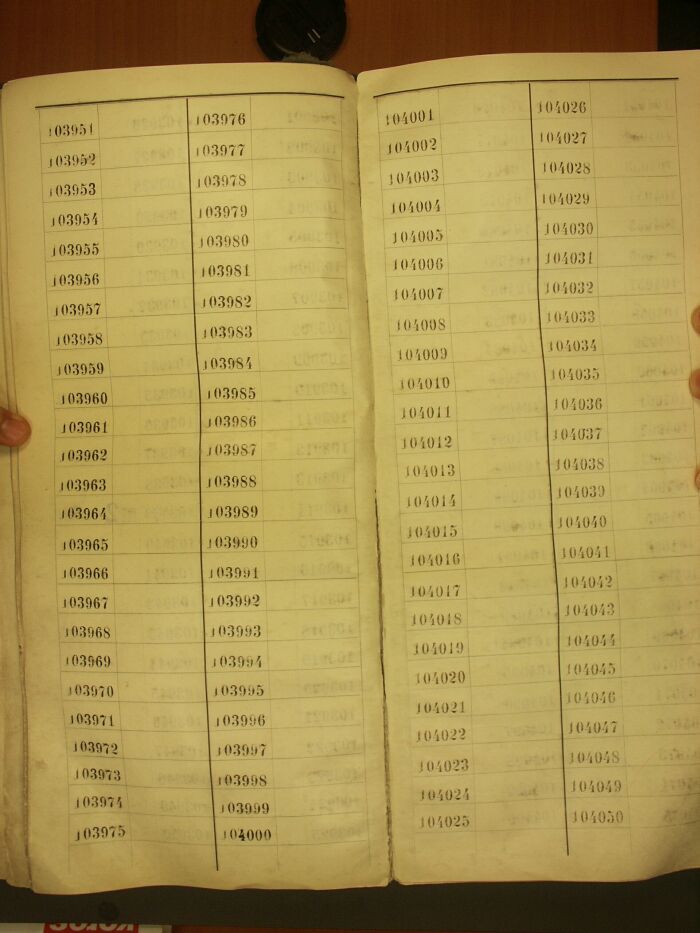 103951
103952
103953
103954
103955
103956
103957
103958
103959
103960
103961
103962
103963
103964
103965
103966
103967
103968
103969
103970
103971
103972
103973
103974
103975
103976
103977
103978
103979
103980
103981
103982
103983
103984
103985
103986
103987
103988
103989
103990
103991
103992
103993
103994
103995
103996
103997
103998
103999
104000
104001
104002
104003
104004
104005
104006
104007
104008
104009
104010
104011
104012
104013
104014
104015
104016
104017
104018
104019
104020
104021
104022
104023
104024
104025
104026
104027
104028
104029
104030
104031
104032
104033
104034
104035
104036
104037
104038
104039
104040
104041
104042
104043
104044
104045
104046
104047
104048
104049
104050